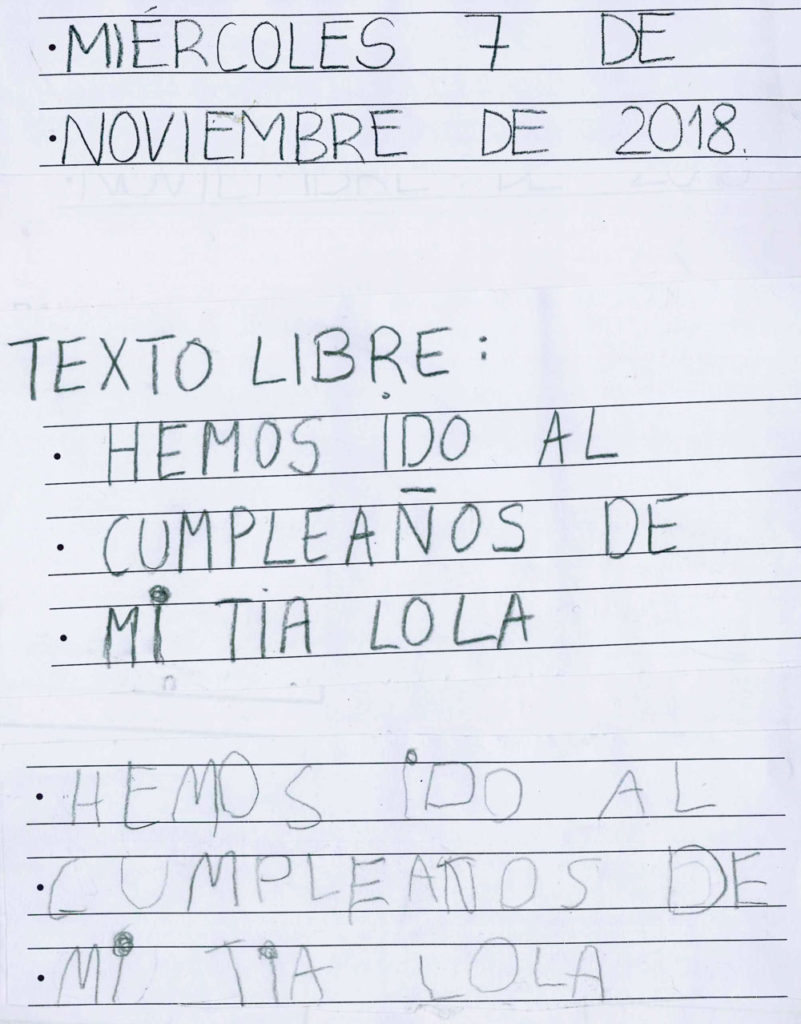 ·MIÉRCOLES 7 DE
·NOVIEMBRE DE 2018.
TEXTO LIBRE:
· HEMOS IDO AL
· CUMPLEAÑOS DE
· MI TIA LOLA
· HEMOS IDO AL
· CUMPLEAÑOS DE
· MI TIA LOLA